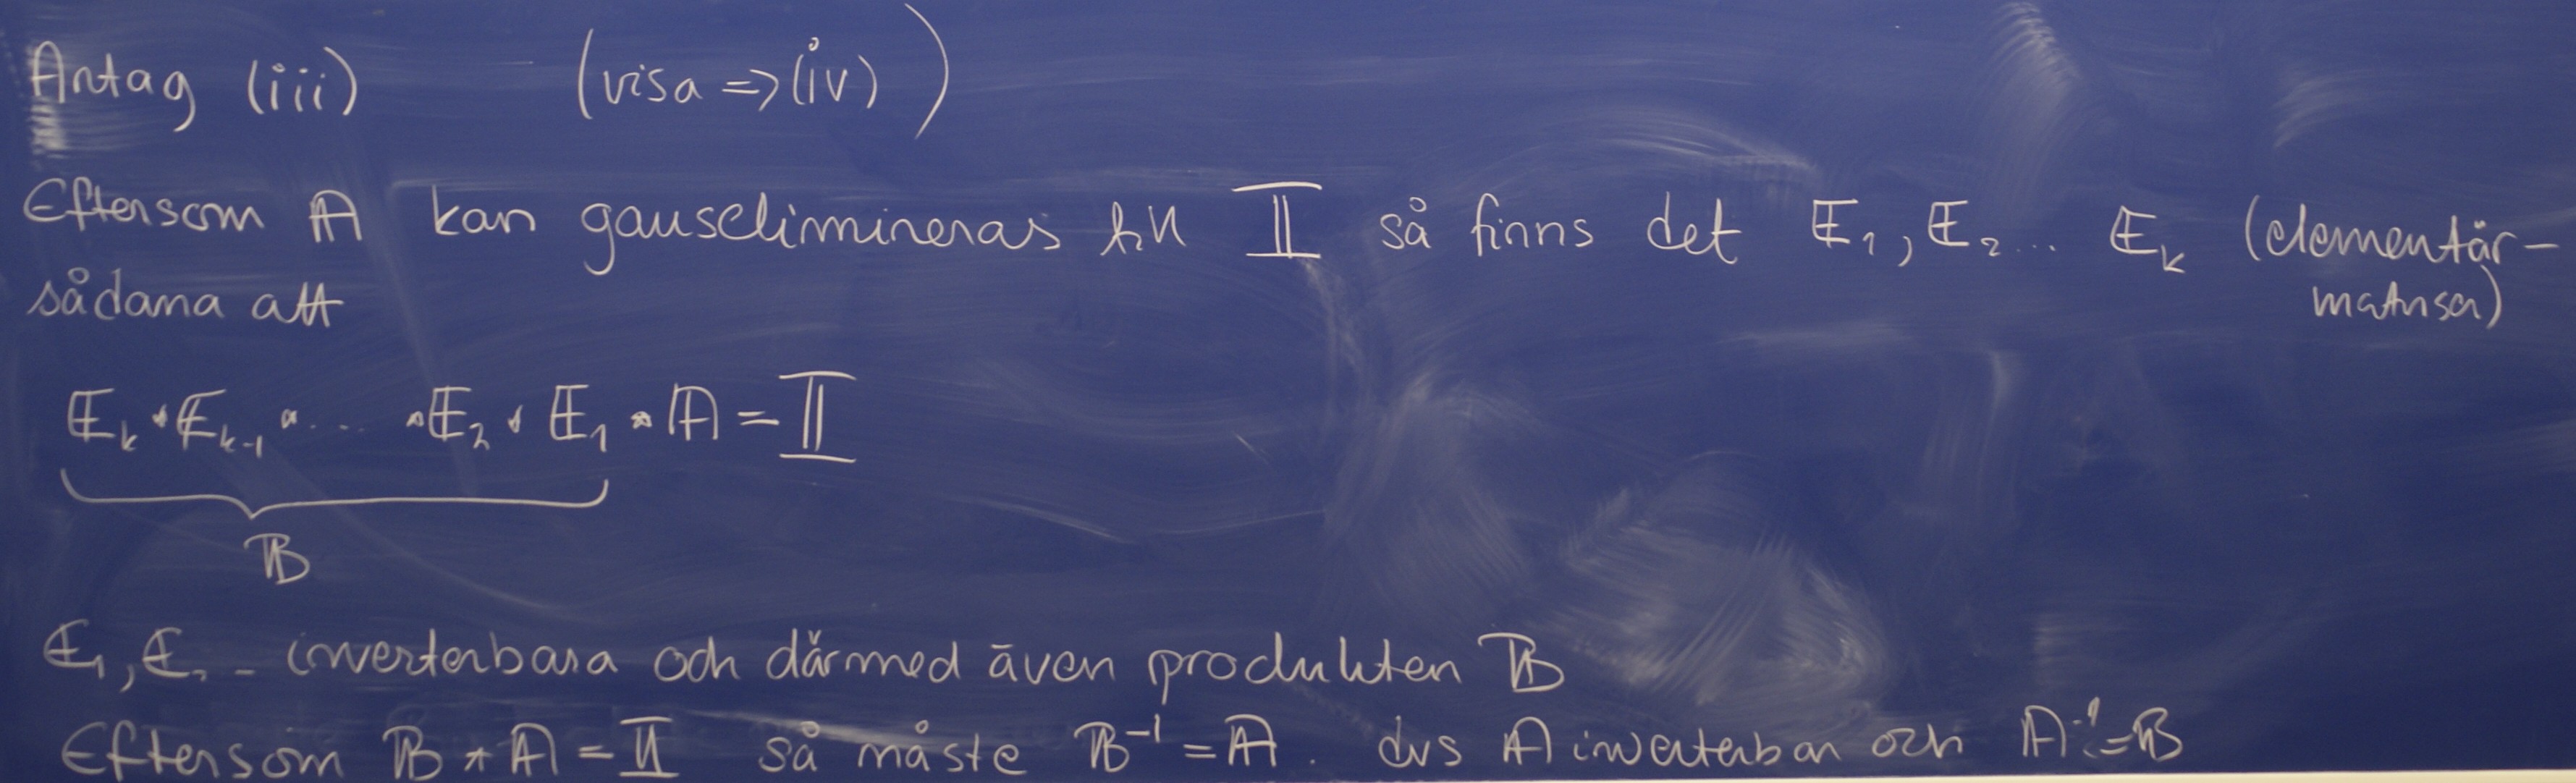 Antag (iii) (visa => (iv))
Eftersom A kan gauselimineras till I så finns det E₁, E₂ ... Eₖ (elementär-
sådana att matriser)
Eₖ * Eₖ₋₁ * ... * E₂ * E₁ * A = I
B
E₁, E₂ - inverterbara och därmed även produkten B
Eftersom B * A = I så måste B⁻¹ = A. dvs A inverterbar och A⁻¹ = B